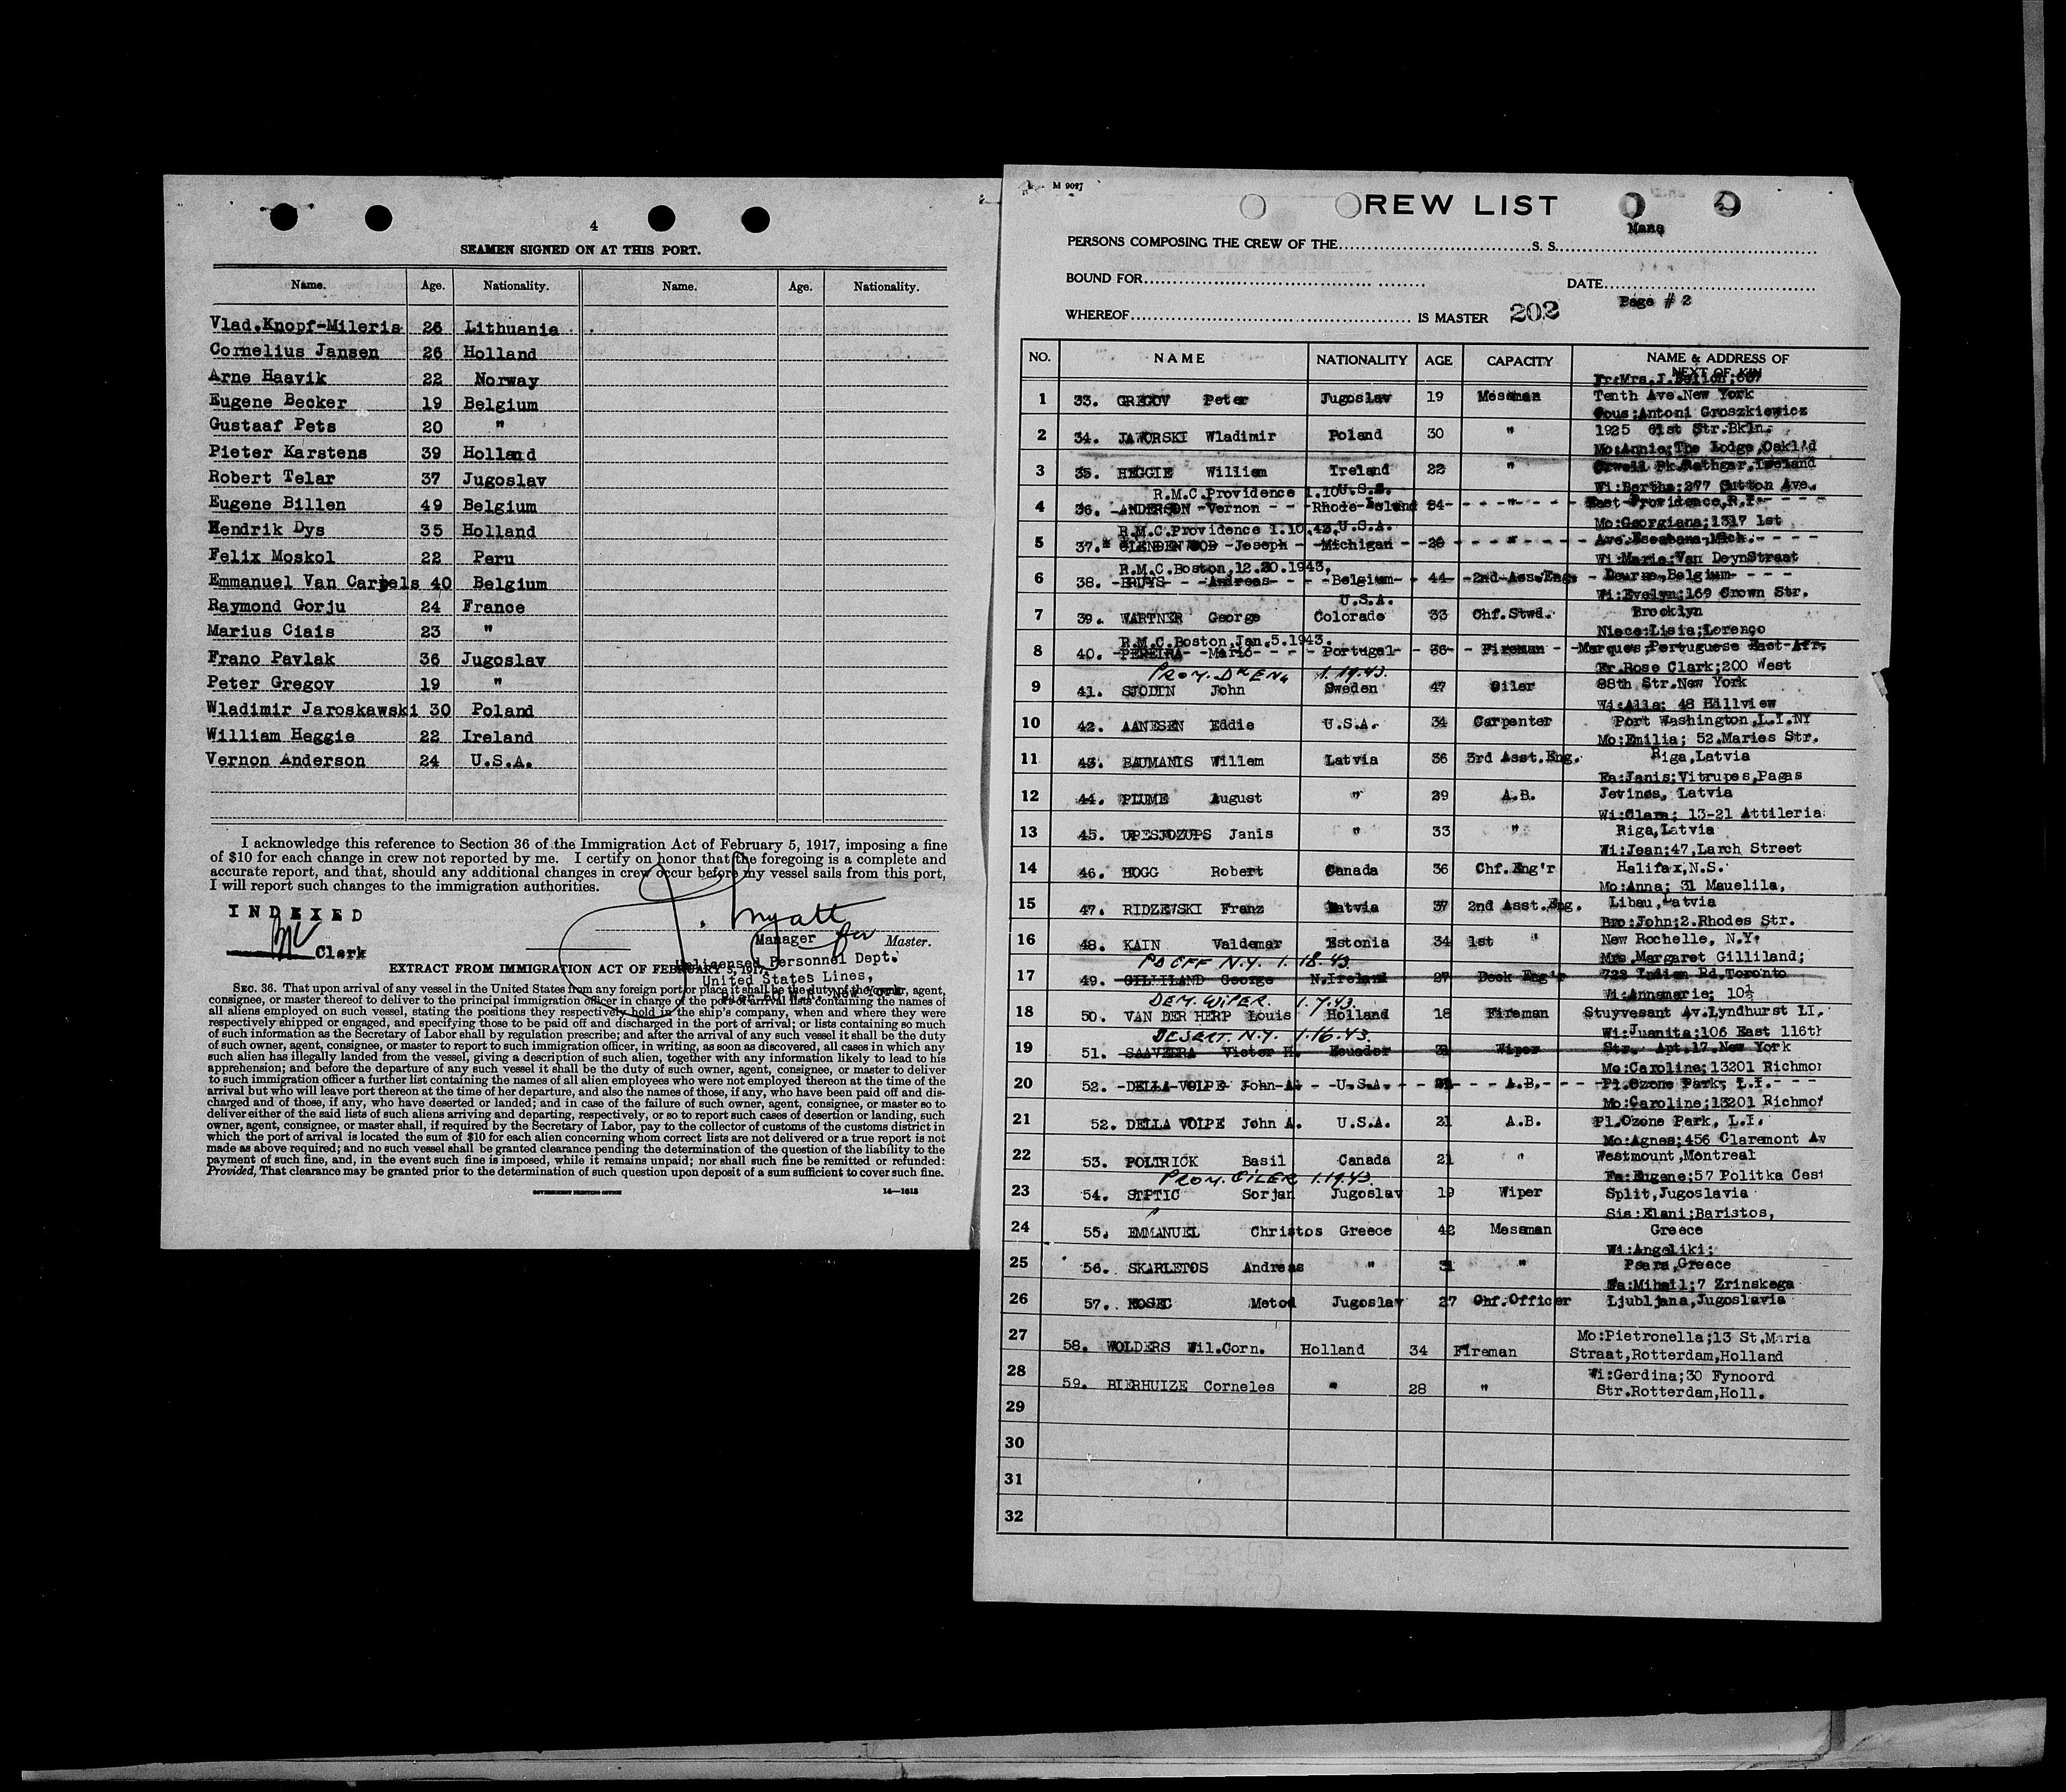 4
SEAMEN SIGNED ON AT THIS PORT.
Name. Age. Nationality. Name. Age. Nationality.
Vlad.Knopf-Mileris 26 Lithuania
Cornelius Jansen 26 Holland
Arne Haavik 22 Norway
Eugene Becker 19 Belgium
Gustaaf Pets 20 "
Pieter Karstens 39 Holland
Robert Telar 37 Jugoslav
Eugene Billen 49 Belgium
Hendrik Dys 35 Holland
Felix Moskol 22 Peru
Emmanuel Van Carpels 40 Belgium
Raymond Gorju 24 France
Marius Ciais 23 "
Frano Pavlak 36 Jugoslav
Peter Gregov 19 "
Wladimir Jaroskawski 30 Poland
William Heggie 22 Ireland
Vernon Anderson 24 U.S.A.
I acknowledge this reference to Section 36 of the Immigration Act of February 5, 1917, imposing a fine
of $10 for each change in crew not reported by me. I certify on honor that the foregoing is a complete and
accurate report, and that, should any additional changes in crew occur before my vessel sails from this port,
I will report such changes to the immigration authorities.
INDEXED
Clerk
J. Myatt
Manager for Master.
Unlicensed Personnel Dept.
United States Lines,
Pier 60 N.R. New York
EXTRACT FROM IMMIGRATION ACT OF FEBRUARY 5, 1917.
SEC. 36. That upon arrival of any vessel in the United States from any foreign port or place it shall be the duty of the owner, agent,
consignee, or master thereof to deliver to the principal immigration officer in charge of the port of arrival lists containing the names of
all aliens employed on such vessel, stating the positions they respectively hold in the ship's company, when and where they were
respectively shipped or engaged, and specifying those to be paid off and discharged in the port of arrival; or lists containing so much
of such information as the Secretary of Labor shall by regulation prescribe; and after the arrival of any such vessel it shall be the duty
of such owner, agent, consignee, or master to report to such immigration officer, in writing, as soon as discovered, all cases in which any
such alien has illegally landed from the vessel, giving a description of such alien, together with any information likely to lead to his
apprehension; and before the departure of any such vessel it shall be the duty of such owner, agent, consignee, or master to deliver
to such immigration officer a further list containing the names of all alien employees who were not employed thereon at the time of the
arrival but who will leave port thereon at the time of her departure, and also the names of those, if any, who have been paid off and dis-
charged and of those, if any, who have deserted or landed; and in case of the failure of such owner, agent, consignee, or master so to
deliver either of the said lists of such aliens arriving and departing, respectively, or so to report such cases of desertion or landing, such
owner, agent, consignee, or master shall, if required by the Secretary of Labor, pay to the collector of customs of the customs district in
which the port of arrival is located the sum of $10 for each alien concerning whom correct lists are not delivered or a true report is not
made as above required; and no such vessel shall be granted clearance pending the determination of the question of the liability to the
payment of such fine, and, in the event such fine is imposed, while it remains unpaid; nor shall such fine be remitted or refunded:
Provided, That clearance may be granted prior to the determination of such question upon deposit of a sum sufficient to cover such fine.
GOVERNMENT PRINTING OFFICE 14—1613
M 9097
REW LIST
Mane
PERSONS COMPOSING THE CREW OF THE S. S.
BOUND FOR DATE
Page # 2
WHEREOF IS MASTER 203
NO. NAME NATIONALITY AGE CAPACITY NAME & ADDRESS OF
NEXT OF KIN
Fr:Mrs.J.
1 33. GREGOV Peter Jugoslav 19 Messman Tenth Ave.New York
Cous:Antoni Groszkiewicz
2 34. JAWORSKI Wladimir Poland 30 " 1925 61st Str.Bkln.
Mo:Annie;The Lodge,Oakl'd
3 35. HEGGIE William Ireland 22 " Orwell Pk.Rathgar,Ireland
R.M.C.Providence 1.10 U.S.A. Wi:Bertha;277 Sutton Ave.
4 36. ANDERSON Vernon Rhode-Island 24 " East Providence,R.I.
R.M.C.Providence 1.10.43, U.S.A. Mo:Georgiana;1317 1st
5 37. GLENDENWOOD Joseph Michigan 26 " Ave.Escabana,Mich.
R.M.C.Boston,12.20.1943, Wi:Maria:Van DeynStraat
6 38. BRUYS Andreas Belgium 44 2nd Ass.Eng. Deurne,Belgium
U.S.A. Wi:Evelyn;169 Crown Str.
7 39. WARTNER George Colorado 33 Chf.Stwd. Brooklyn
R.M.C.Boston,Jan.5.1943. Niece:Lisia;Lorenço
8 40. PEREIRA Mario Portugal 36 Fireman Marques,Portuguese East-Afr.
PROM. DK ENG 1.19.43. Fr.Rose Clark;200 West
9 41. SJODIN John Sweden 47 Oiler 88th Str.New York
Wi:Alla; 48 Hillview
10 42. AANESEN Eddie U.S.A. 34 Carpenter Port Washington,L.I.NY
Mo:Emilia; 52.Maries Str.
11 43. BAUMANIS Willem Latvia 36 3rd Asst.Eng. Riga,Latvia
Fa:Janis;Vitrupes,Pagas
12 44. PLUME August " 29 A.B. Jevinos, Latvia
Wi:Clara; 13-21 Attileria
13 45. UPESJOZUPS Janis " 33 " Riga,Latvia
Wi:Jean;47,Larch Street
14 46. HOGG Robert Canada 36 Chf.Eng'r Halifax,N.S.
Mo:Anna; 31 Mauelila,
15 47. RIDZEWSKI Franz Latvia 37 2nd Asst.Eng. Libau,Latvia
Bro:John;2.Rhodes Str.
16 48. KAIN Valdemar Estonia 34 1st " New Rochelle, N.Y.
PD OFF N.Y. 1.18.43 Mrs.Margaret Gilliland;
17 49. GILLILAND George N.Ireland 27 Deck Eng'r 722 Indian Rd,Toronto
DEM. WIPER. 1.7.43. Wi:Annemarie; 10½
18 50. VAN DER HERP Louis Holland 18 Fireman Stuyvesant Av.Lyndhurst LI.
DESERT. N.Y. 1.16.43. Wi:Juanita;106 East 116th
19 51. SAAVEDRA Victor H. Ecuador 31 Wiper Str. Apt.17.New York
Mo:Caroline;13201 Richmon
20 52. DELLA VOLPE John A. U.S.A. 21 A.B. Pl.Ozone Park, L.I.
Mo:Caroline;13201 Richmon
21 52. DELLA VOLPE John A. U.S.A. 21 A.B. Pl.Ozone Park, L.I.
Mo:Agnes;456 Claremont Av
22 53. POLTRICK Basil Canada 21 " Westmount,Montreal
PROM. OILER 1.19.43. Fa:Eugene;57 Politka Cest
23 54. STPTIC Sorjan Jugoslav 19 Wiper Split,Jugoslavia
Sis:Elani;Baristos,
24 55. EMMANUEL Christos Greece 42 Messman Greece
Wi:Angeliki;
25 56. SKARLETOS Andreas " 31 " Psara,Greece
Fa:Mihail;7 Zrinskega
26 57. KOSEC Metod Jugoslav 27 Chf.Officer Ljubljana,Jugoslavia
27 Mo:Pietronella;13 St.Maria
58. WOLDERS Wil.Corn. Holland 34 Fireman Straat,Rotterdam,Holland
28 Wi:Gerdina;30 Fynoord
59. BIERHUIZE Corneles " 28 " Str.Rotterdam,Holl.
29
30
31
32